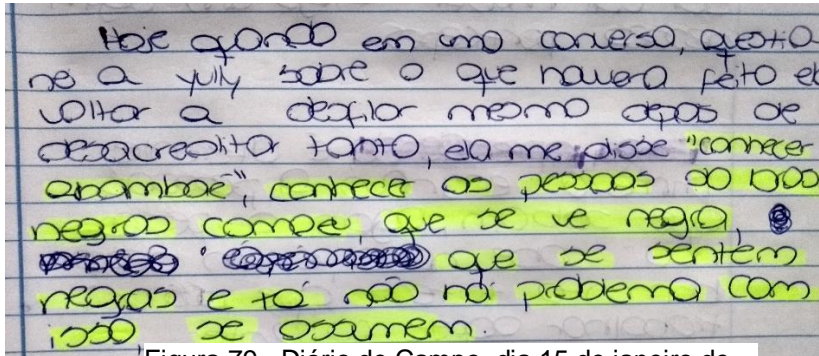 Hoje quando em uma conversa, questio
ne a yully sobre o que havera feito el
voltar a desfilar mesmo depois de
desacreditar tanto, ela me disse "conhecer
conhece as pessoas
negras que se ve negra,
que se sentem
negras e tá não há problema com
isso se assumem.
Figura 70 - Diário de Campo, dia 15 de janeiro de